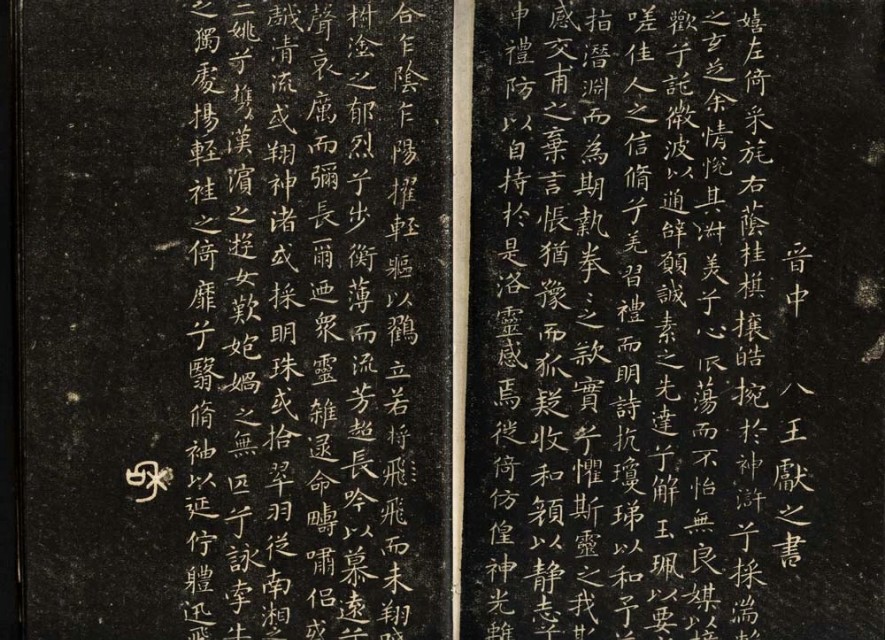 晉中 八王獻之書
嬉左倚采旄右蔭桂棋攘皓捥於神滸兮採湍
之玄芝余情悅其淑美兮心振蕩而不怡無良媒以
歡兮託微波以通辭願誠素之先達兮解玉珮以要
嗟佳人之信脩兮羌習禮而明詩抗瓊珶以和予兮
指潛淵而為期執拳〻之款實兮懼斯靈之我欺
感交甫之棄言悵猶豫而狐疑收和顏以静志兮
申禮防以自持於是洛靈感焉徙倚仿偟神光離
合乍陰乍陽擢輕軀以鶴立若將飛飛而未翔踐
椒塗之郁烈兮步衡薄而流芳超長吟以慕遠兮
聲哀厲而彌長爾迺眾靈雜遝命疇嘯侶或
戲清流或翔神渚或採明珠或拾翠羽從南湘之
二姚兮攜漢濱之遊女歎匏媧之無匹兮詠牽牛
之獨處揚輕袿之倚靡兮翳脩袖以延佇軆迅飛